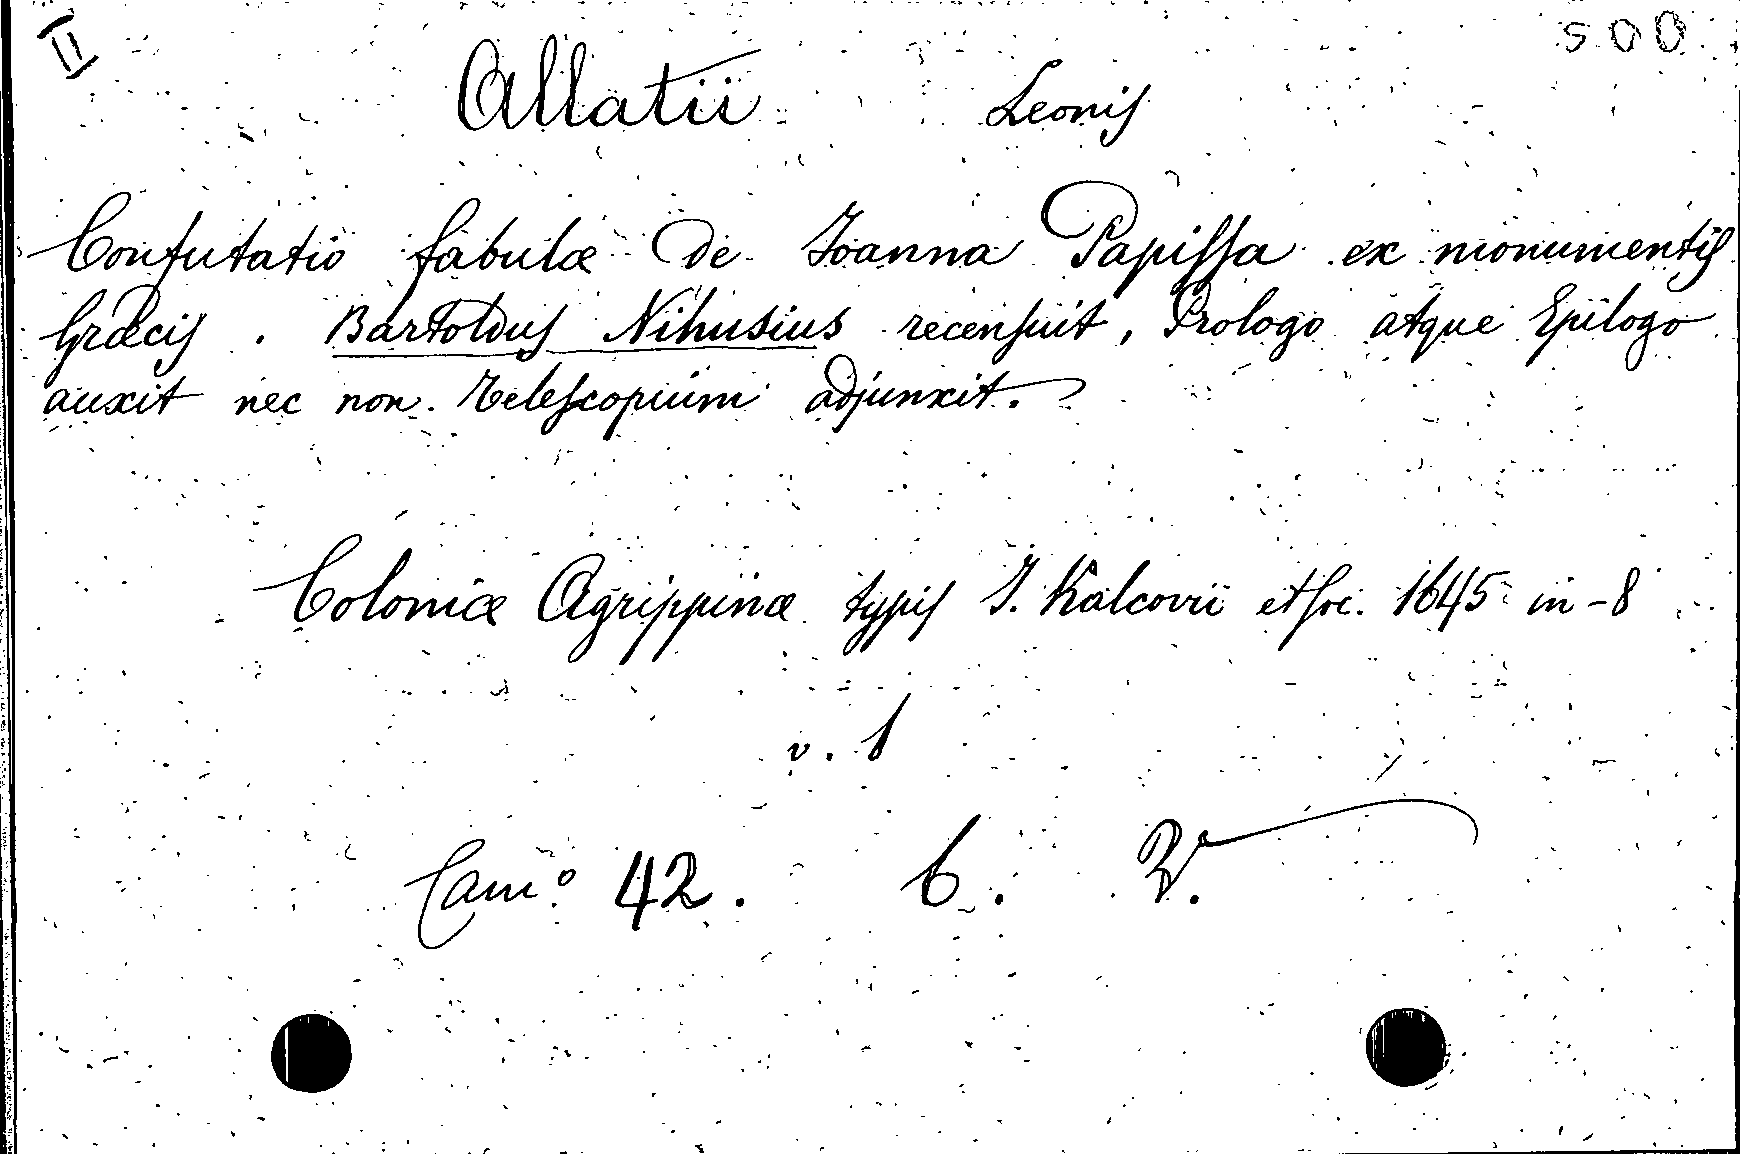 II
500
Allatii Leonis
Confutatio fabulæ de Joanna Papissa ex monumentis
Græcis. Bartoldus Nihusius recensuit, Prologo atque Epilogo
auxit nec non Telescopium adjunxit.
Coloniæ Agrippinæ typis J. Kalcovii et soc. 1645 in-8
v. 1
Cam.º 42. 6.